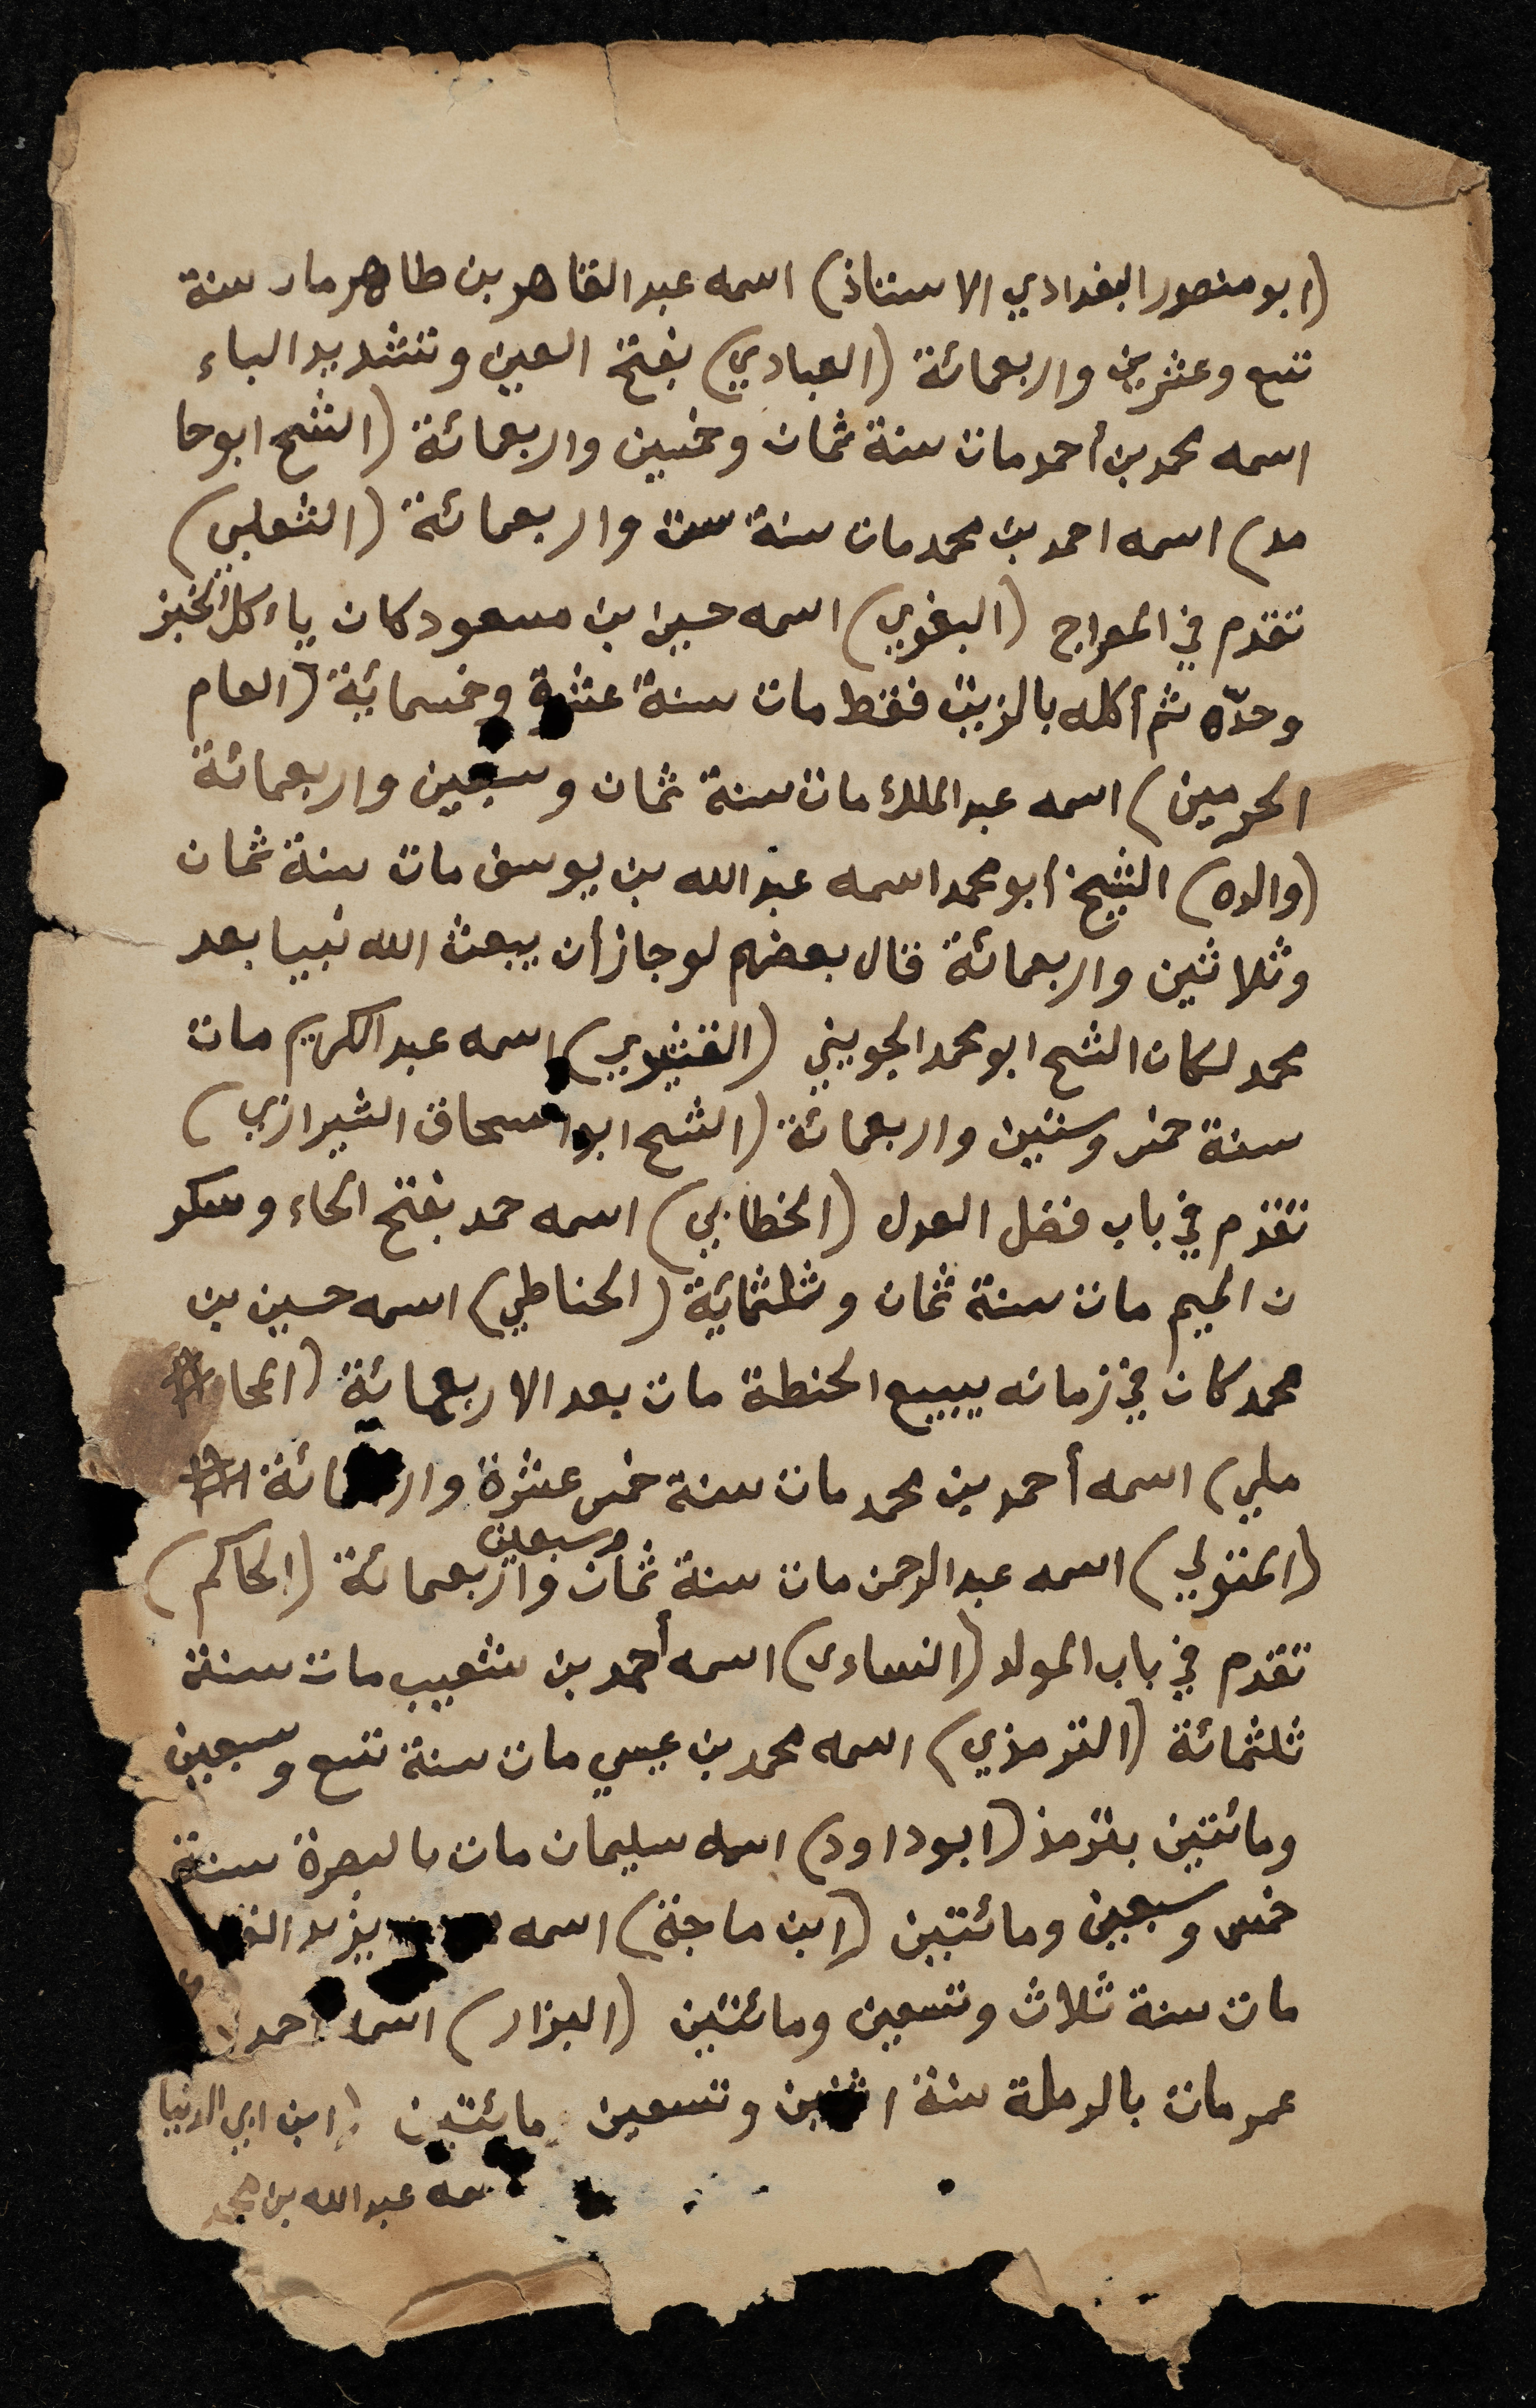 (ابو منصور البغدادي الاستاذ) اسمه عبد القاهر بن طاهر مات سنة
تسع وعشرين واربعمائة (العبادي) بفتح العين وتشديد الباء
اسمه محمد بن أحمد مات سنة ثمان وخمسين واربعمائة (الشيخ ابو حا
مد) اسمه احمد بن محمد مات سنة ست واربعمائة (الثعلبي)
تقدم في المعراج (البغوي) اسمه حسين بن مسعود كان ياءكل الخبز
وحدّه ثم أكله بالزيت فقط مات سنة عشرة وخمسمائة (امام
الحرمين) اسمه عبد الملك مات سنة ثمان وسبعين واربعمائة
(والده) الشيخ أبو محمد اسمه عبد الله بن يوسف مات سنة ثمان
وثلاثين واربعمائة قال بعضهم لو جاز أن يبعث الله نبيا بعد
محمد لكان الشيخ ابو محمد الجويني (القشيري) اسمه عبد الكريم مات
سنة خمس وستين واربعمائة (الشيخ ابو اسحاق الشيرازي)
تقدم في باب فضل العدل (الخطابي) اسمه حمد بفتح الحاء وسكو
ن الميم مات سنة ثمان وثلثمائة (الحناطي) اسمه حسين بن
محمد كان في زمانه يبيع الحنطة مات بعد الاربعمائة (المحا
ملي) اسمه أحمد بن محمد مات سنة خمس عشرة واربعمائة
(المتولي) اسمه عبد الرحمن مات سنة ثمان وسبعين واربعمائة (الحاكم)
تقدم في باب المولد (النساءى) اسمه أحمد بن شعيب مات سنة
ثلثمائة (الترمذي) اسمه محمد بن عيسي مات سنة تسع وسبعين
ومائتين بترمذ (ابو داود) اسمه سليمان مات بالبصرة سنة
خمس وسبعين ومائتين (ابن ماجة) اسمه يزيد
مات سنة ثلاث وتسعين ومائتين (البزار) اسمه احمد
عمر مات بالرملة سنة اثنين وتسعين مائتين (ابن ابي الدنيا
سمه عبد الله بن محمد